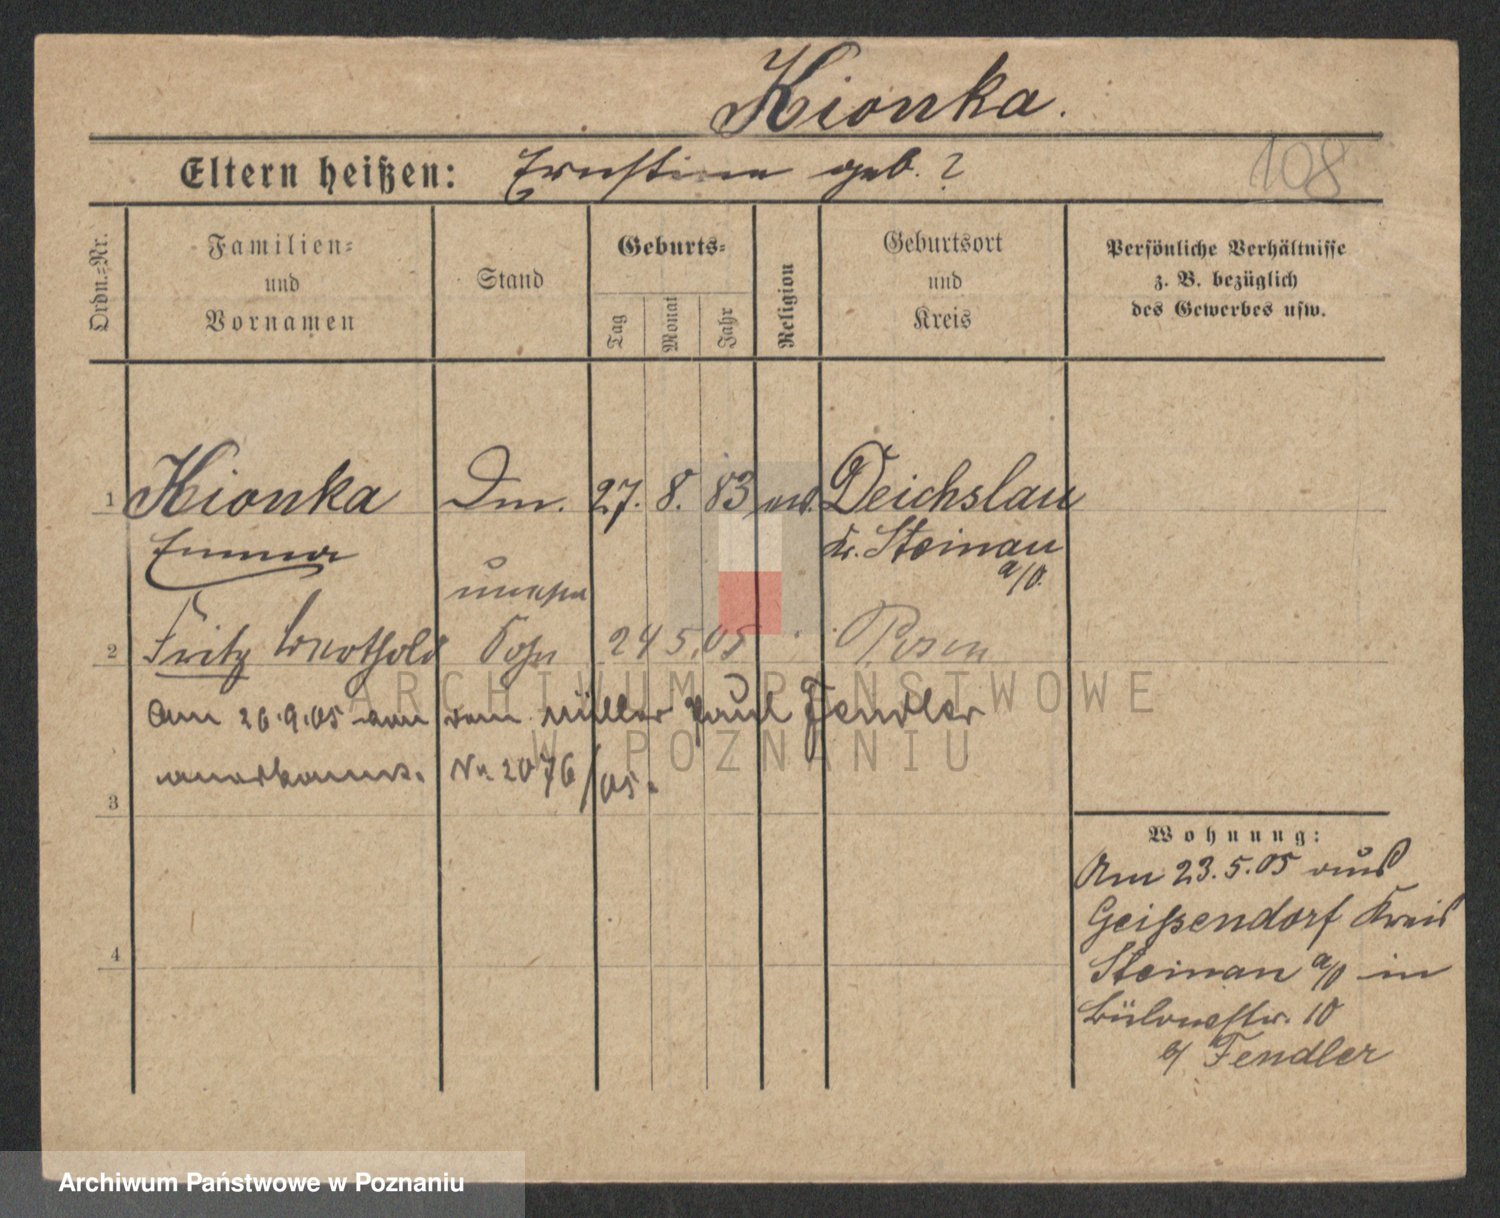 Kionka.
108
Eltern heißen: Ernstine geb. ?
Ordn.=Nr.
Familien=
und
Vornamen
Stand
Geburts=
Tag
Monat
Jahr
Religion
Geburtsort
und
Kreis
Persönliche Verhältnisse
z. B. bezüglich
des Gewerbes usw.
1 Kionka 27. 8. 83 Deichslau
Emma Kr. Steinau
a/O.
unehe
2 Fritz Berthold Sohn 24 5. 05 Posen
Am 26.9.05 von dem Müller Paul Fendler
anerkannt. Nr. 2076/05.
3
4
Wohnung:
Am 23.5.05 aus
Geißendorf Kreis
Steinau a/O in
Bülowstr. 10
b/ Fendler
ARCHIWUM PAŃSTWOWE
W POZNANIU
Archiwum Państwowe w Poznaniu